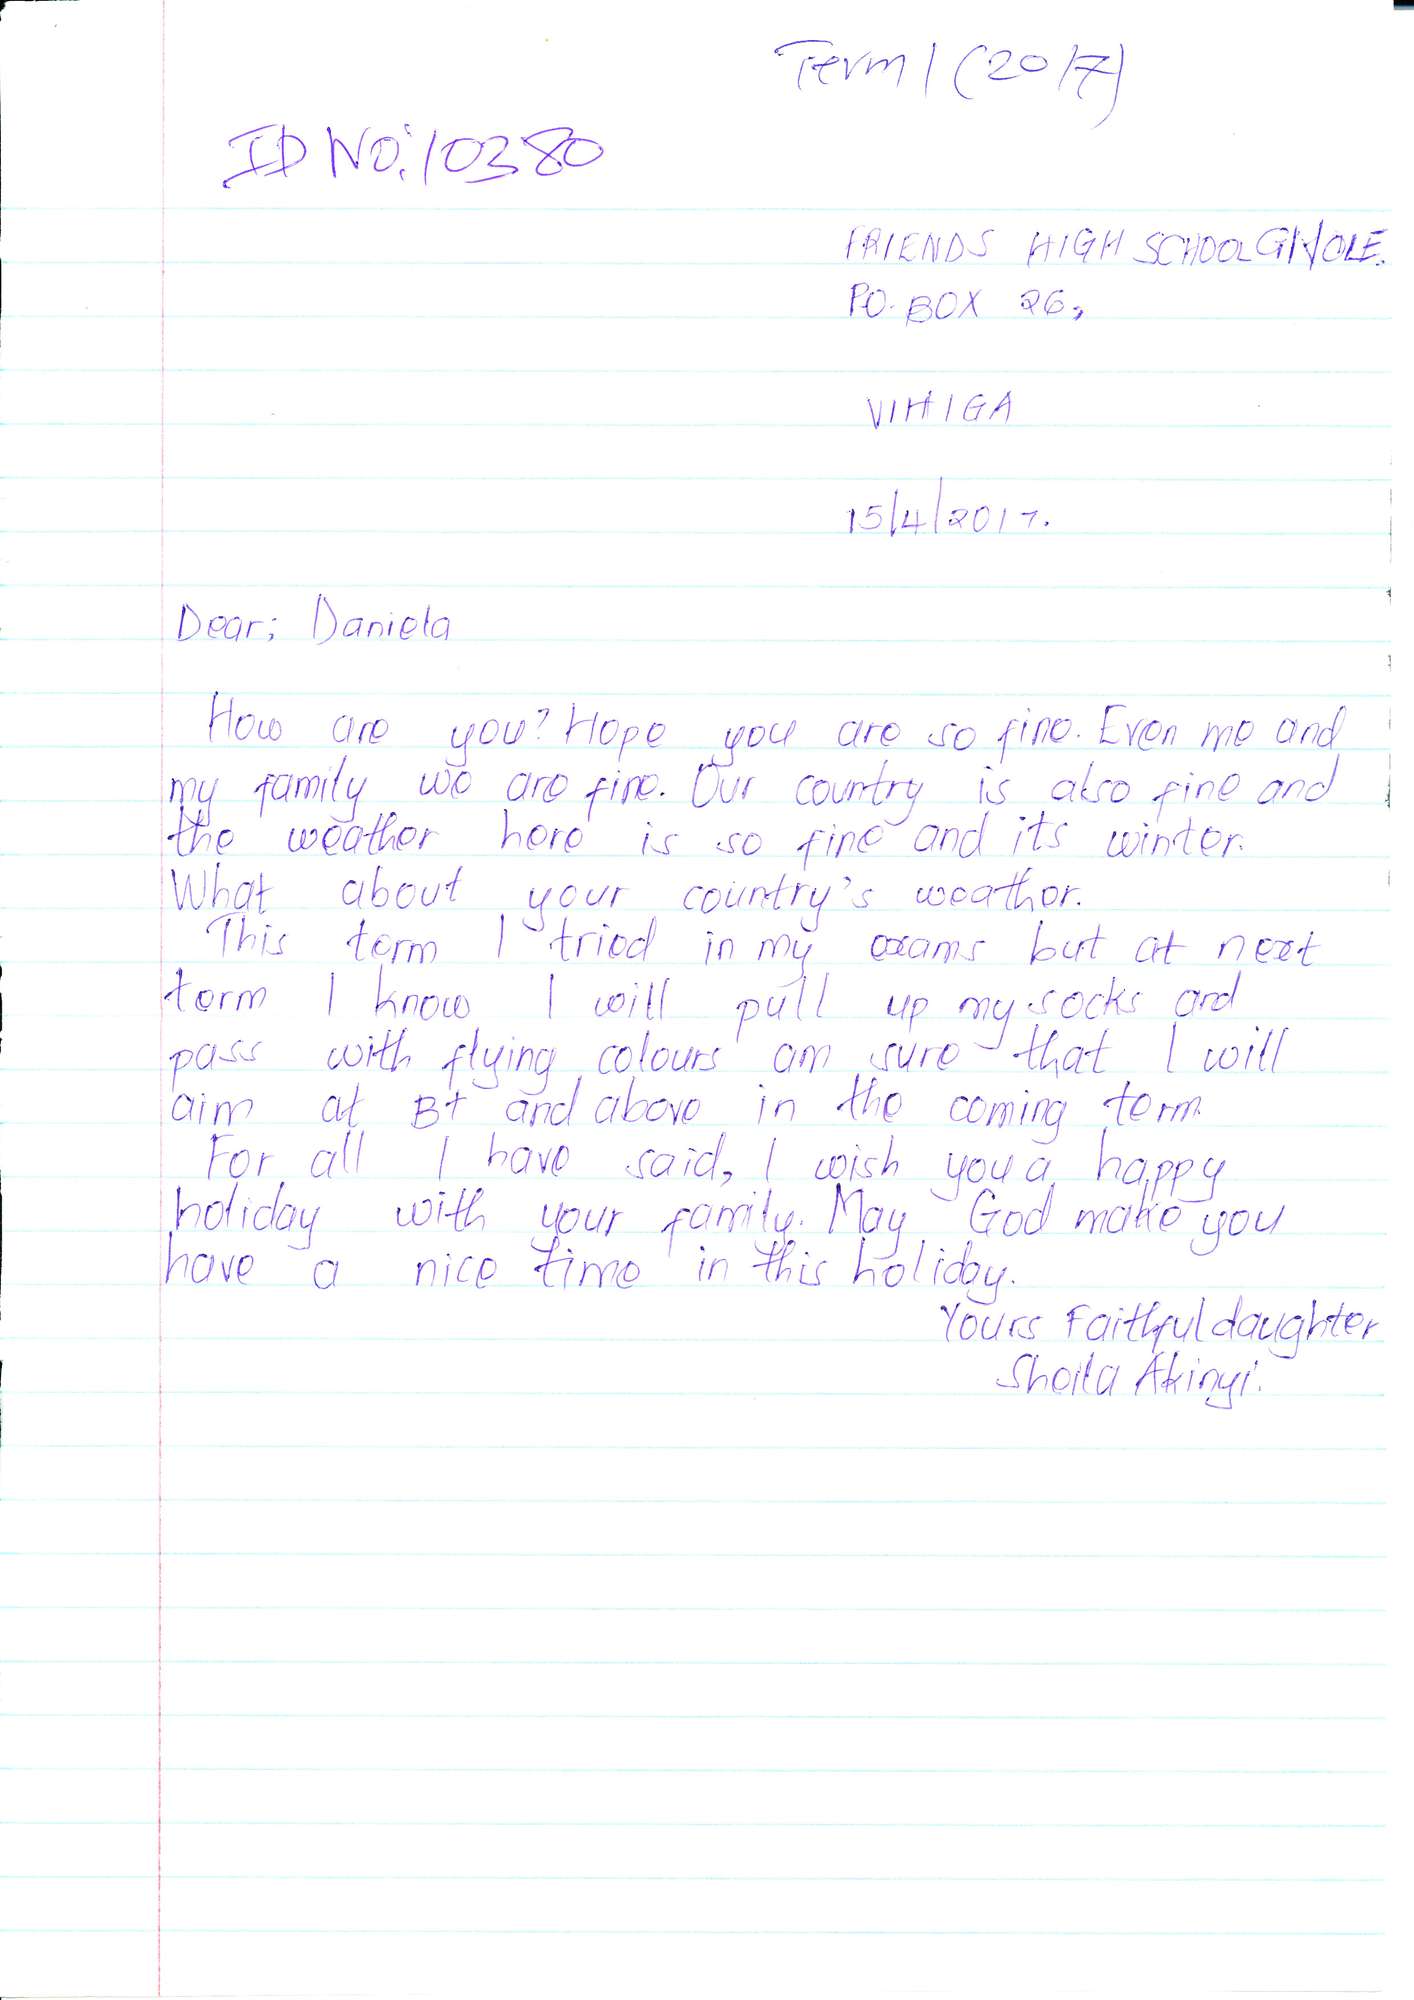 Term 1 (2017)
ID NO: 10380
FRIENDS HIGH SCHOOL GIVOLE.
P.O. BOX 26,
VIHIGA
15/4/2017.
Dear; Daniela
How are you? Hope you are so fine. Even me and
my family we are fine. Our country is also fine and
the weather here is so fine and its winter.
What about your country's weather.
This term I tried in my exams but at next
term I know I will pull up my socks and
pass with flying colours am sure that I will
aim at B+ and above in the coming term.
For all I have said, I wish you a happy
holiday with your family. May God make you
have a nice time in this holiday.
Yours Faithful daughter
Sheila Akinyi.